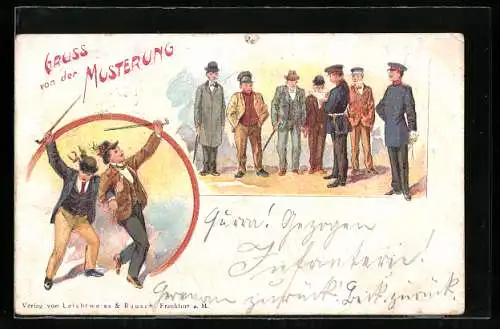 GRUSS
von der MUSTERUNG
Hurra! Gezogen
Infanterie!
zurück! zurück.
Verlag von Leichtweiss & Bausch, Frankfurt a. M.